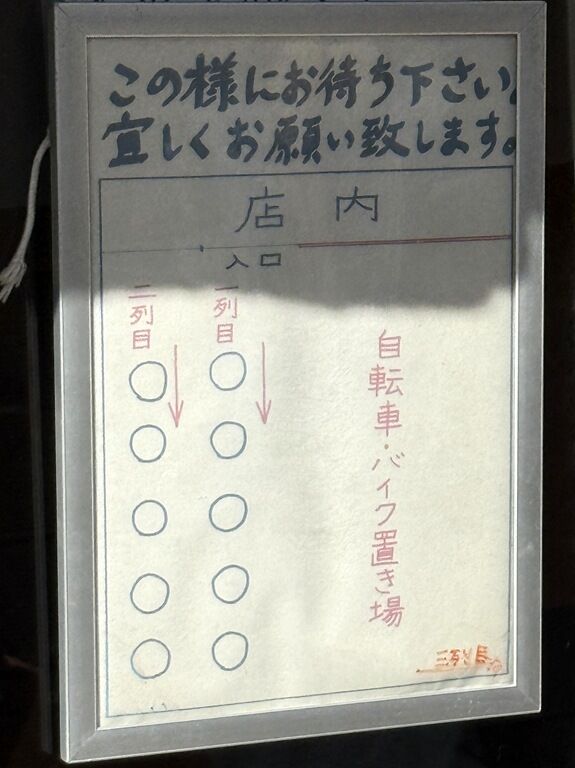 この様にお待ち下さい。
宜しくお願い致します。
店内
入口
一列目
二列目
自転車・バイク置き場